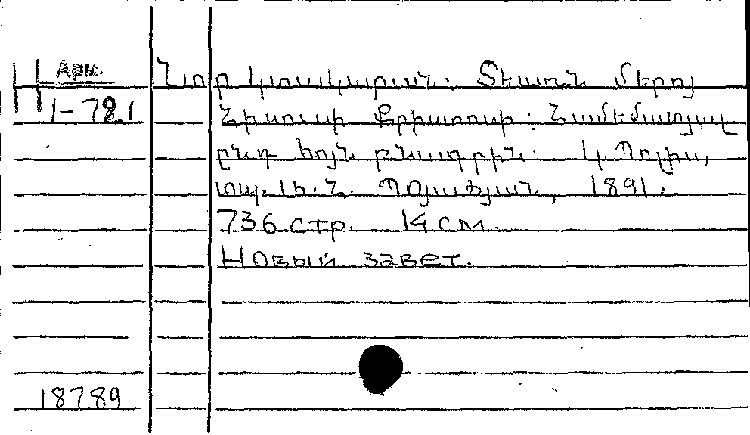 Н Арм. Նոր կտակարան: Տեառն մերոյ
1-78.1 Յիսուսի Քրիստոսի: Համեմատյալ
ընդ հոյն բնադրին. Կ.Պոլիս,
տպ. Պօյաճյան, 1891.
736 стр. 14 см
Новый завет.
18789